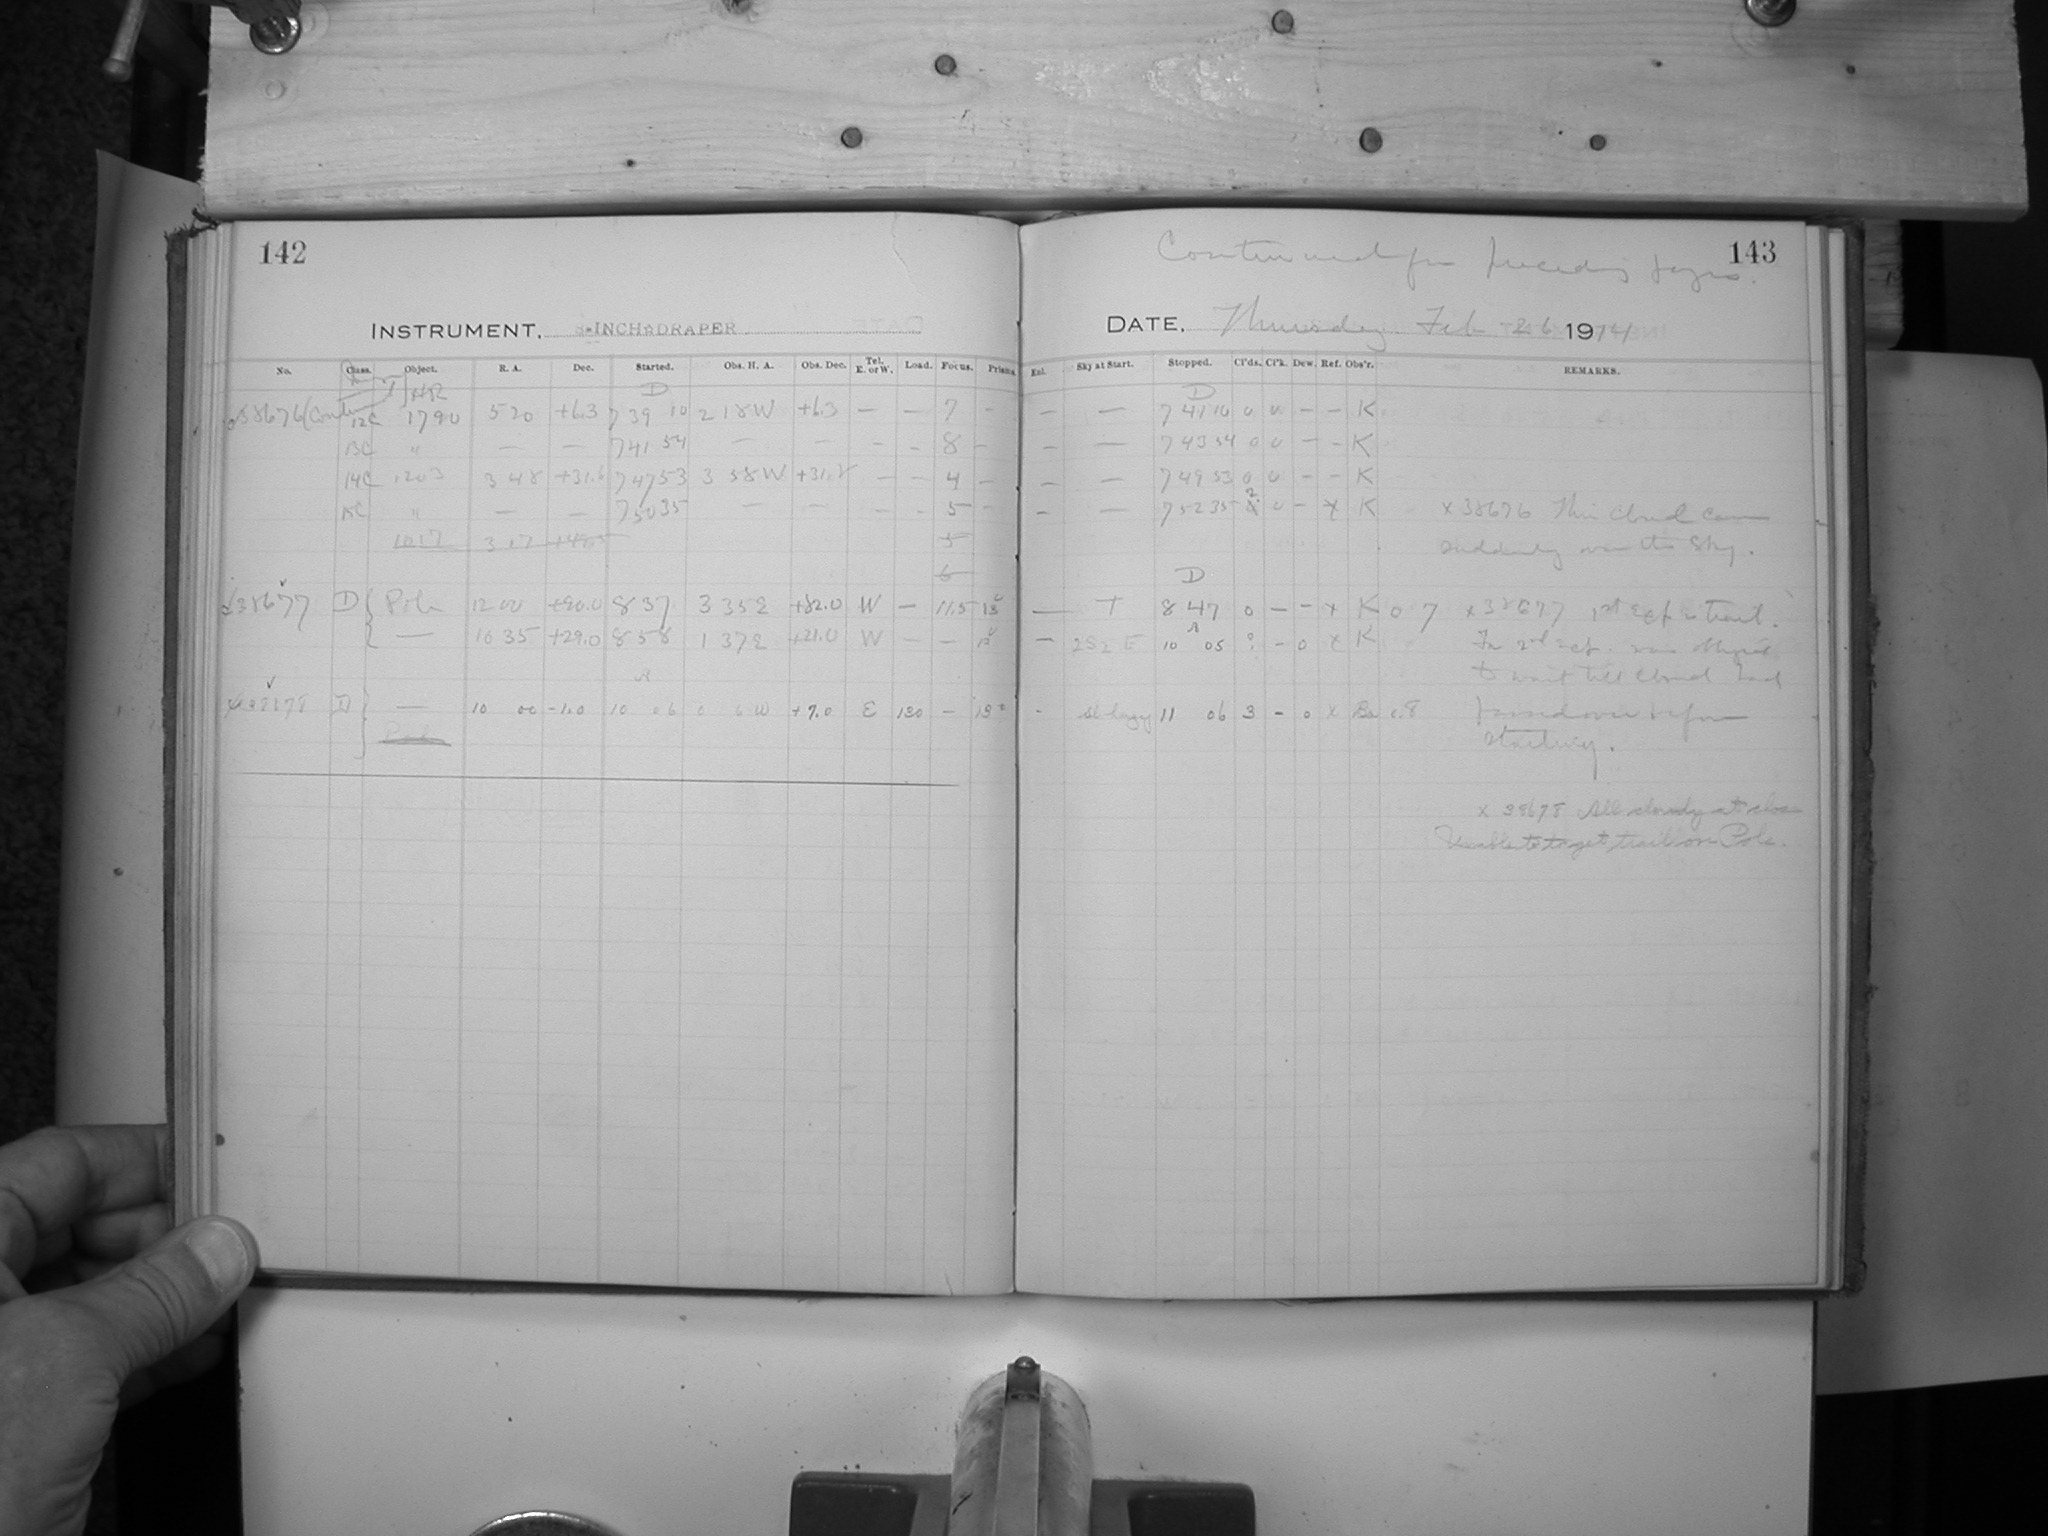 142
143
Continued from preceding page.
INSTRUMENT, 8-INCH DRAPER
DATE, Thursday Feb 26 1914
No. Class. Object. R. A. Dec. Started. Obs. H. A. Obs. Dec. Tel. E. or W. Load. Focus. Prisms. Enl. Sky at Start. Stopped. Cl'ds. Cl'k. Dew. Ref. Obs'r. REMARKS.
HR D D
38676 (Cont 12C 1790 5 20 +6.3 7 39 10 2 18 W +6.3 — — 7 - — — 7 41 10 0 0 — - K
13C " — — 7 41 54 — — - - 8 - — — 7 43 54 0 0 — - K
14C 1203 3 48 +31.6 7 47 53 3 58 W — — 4 - — — 7 49 53 0 0 - - K
15C " — — 7 50 35 — — - - 5 - — — 7 52 35 2 0 - x K x 38676 Thin cloud came
1017 3 17 5 suddenly over the sky.
6
D
38677 D Pole 12 00 +90.0 8 37 3 35 E +82.0 W — 11.5 15 — T 8 47 0 — - x K 0 7 x 38677 1st Exp is trail.
— 10 35 +29.0 8 58 1 37 E +21.0 W — — 15 — 2S2E 10 05 ? - 0 x K In 2nd exp. was obliged
to wait till cloud had
38678 D — 10 00 -1.0 10 06 0 6 W +7.0 E 130 — 15 - sl. hazy 11 06 3 - 0 x Ba 0.8 passed over before
Pole starting.
x 38678 All cloudy at close
Unable to get trail on Pole.